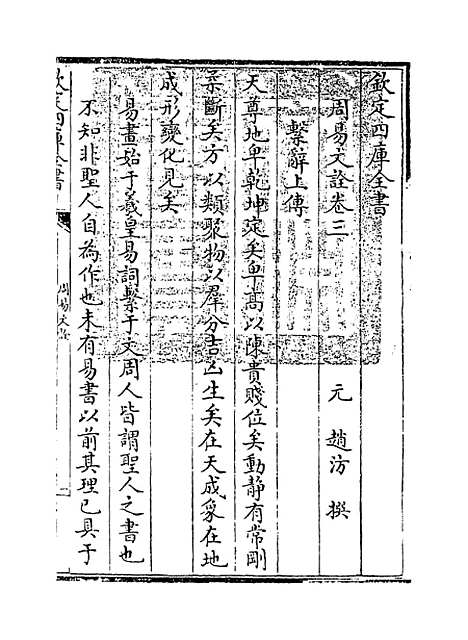 欽定四庫全書
周易文詮卷三
元 趙汸 撰
繫辭上傳
天尊地卑乾坤定矣卑高以陳貴賤位矣動靜有常剛
柔斷矣方以類聚物以羣分吉凶生矣在天成象在地
成形變化見矣
易畫始于羲皇易詞繫于文周人皆謂聖人之書也
不知非聖人自為作也未有易書以前其理已具于
欽定四庫全書
周易文詮
一